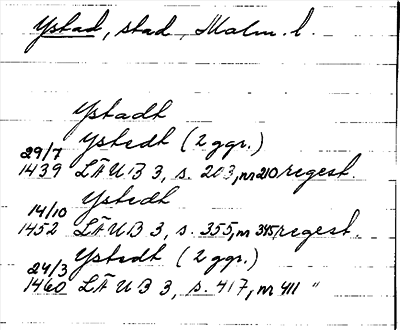 Ystad, stad, Malm. l.
Ystadt
Ystedt (2 ggr.)
29/7
1439 LÄUB 3, s. 203, nr 210 regest.
Ystedt
14/10
1452 LÄUB 3, s. 355, nr 345, regest.
Ystedt (2 ggr.)
24/3
1460 LÄUB 3, s. 417, nr 411 "